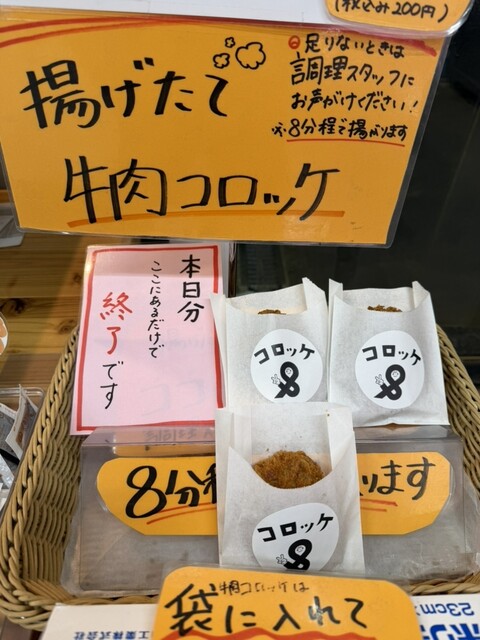 (税込み200円)
揚げたて
牛肉コロッケ
足りないときは
調理スタッフに
お声がけください!
※8分程で揚がります
本日分
ここにあるだけで
終了です
コロッケ
8
コロッケ
8
コロッケ
8
8分程
ります
牛肉コロッケは
袋に入れて
工業株式会社
23cm